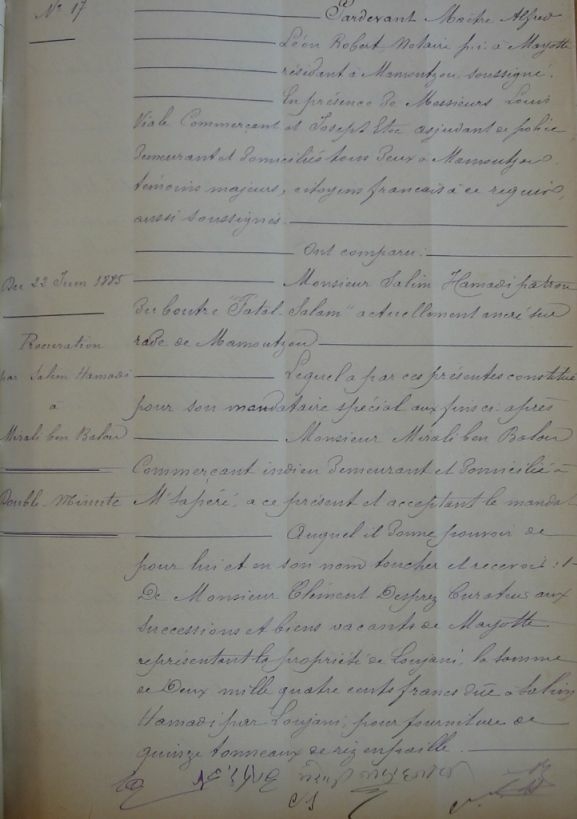 N° 17
Pardevant Maître Alfred
Léon Robert Notaire p.i. à Mayotte
résidant à Mamoutzou, soussigné.
En présence de Messieurs Louis
Viale Commerçant et Joseph adjudant de police
demeurant et domiciliés tous deux à Mamoutzou
témoins majeurs, citoyens français à ce requis,
aussi soussignés.
Ont comparu:
Du 22 Juin 1885
Monsieur Salim Hamadi patron
du boutre "Fatal Salam" actuellement ancré sur
rade de Mamoutzou
Procuration
par Salim Hamadi
à
Mirali ben Balou
Double Minute
Lequel a par ces présentes constitué
pour son mandataire spécial aux fins ci-après
Monsieur Mirali ben Balou
Commerçant indien demeurant et domicilié à
M'Sapéré, à ce présent et acceptant le mandat
Auquel il donne pouvoir de
pour lui et en son nom toucher et recevoir: 1-
De Monsieur Clément Desprez Curateur aux
successions et biens vacants de Mayotte
représentant la propriété de Loujani, la somme
de Deux mille quatre cents francs due à Salim
Hamadi par Loujani, pour fourniture de
quinze tonneaux de riz en paille.